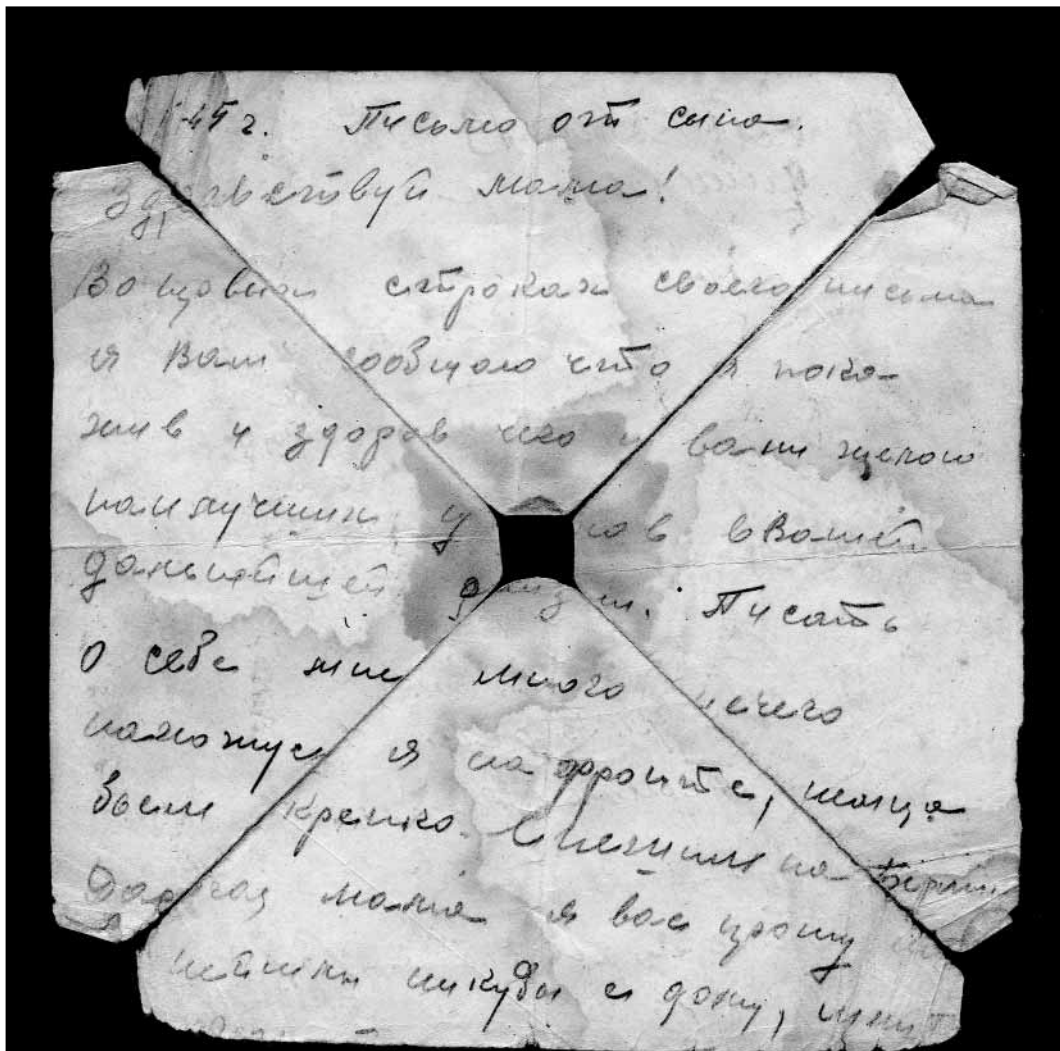 -45 г. Письмо от сына.
Здравствуй мама!
Во первых строках своего письма
я Вам сообщаю что я пока
жив и здоров чего и вам желаю
наилучших в Вашей
дальнейшей жизни. Писать
о себе мне много нечего
нахожусь я на фронте, немца
бьем крепко.
Дорогая мама я вас прошу
никуда с дому,